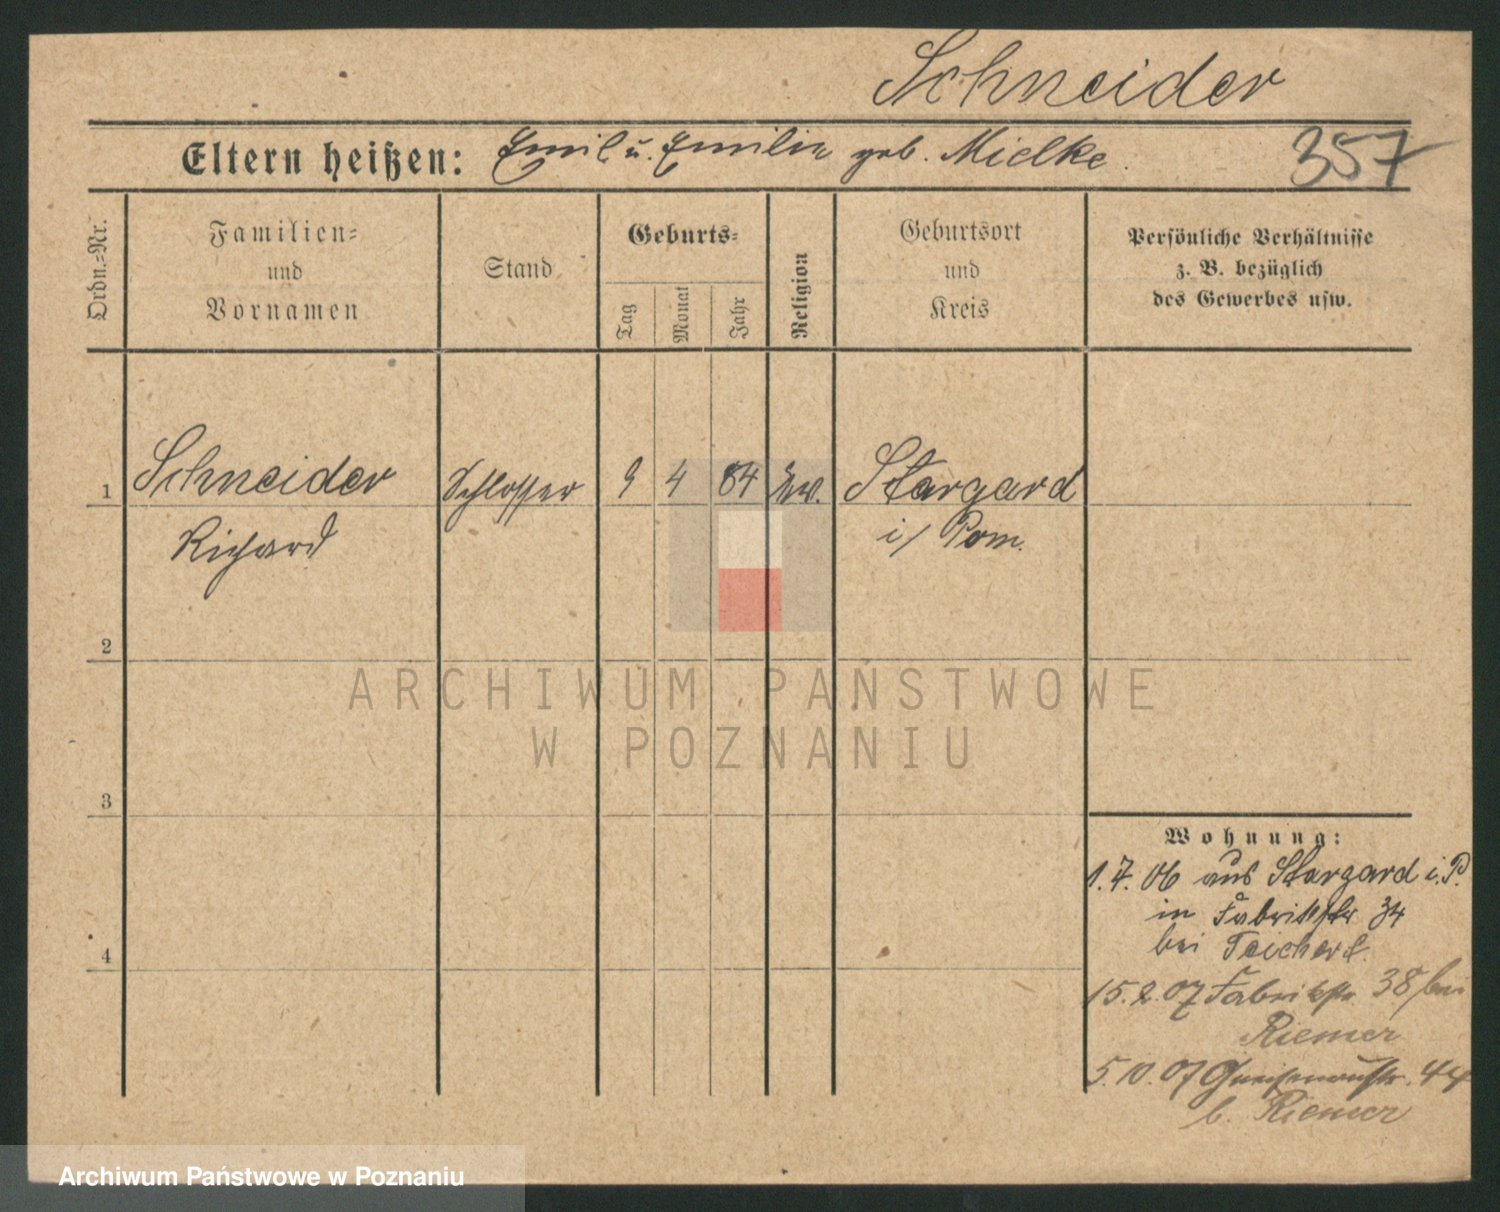 Schneider
Eltern heißen: Emil u. Emilie geb. Mielke.
357
Ordn.=Nr.
Familien=
und
Vornamen
Stand
Geburts=
Tag
Monat
Jahr
Religion
Geburtsort
und
Kreis
Persönliche Verhältnisse
z. B. bezüglich
des Gewerbes usw.
1
Schneider Schlosser 9 4 84 Ev. Stargard
Richard i/ Pom.
2
ARCHIWUM PAŃSTWOWE
W POZNANIU
3
Wohnung:
1.7.06 aus Stargard i.P.
in Fabrikstr 34
bei Teichert.
4
15.2.07 Fabrikstr 38 bei
Riemer
5.10.07 Gneisenaustr. 44
b. Riemer
Archiwum Państwowe w Poznaniu